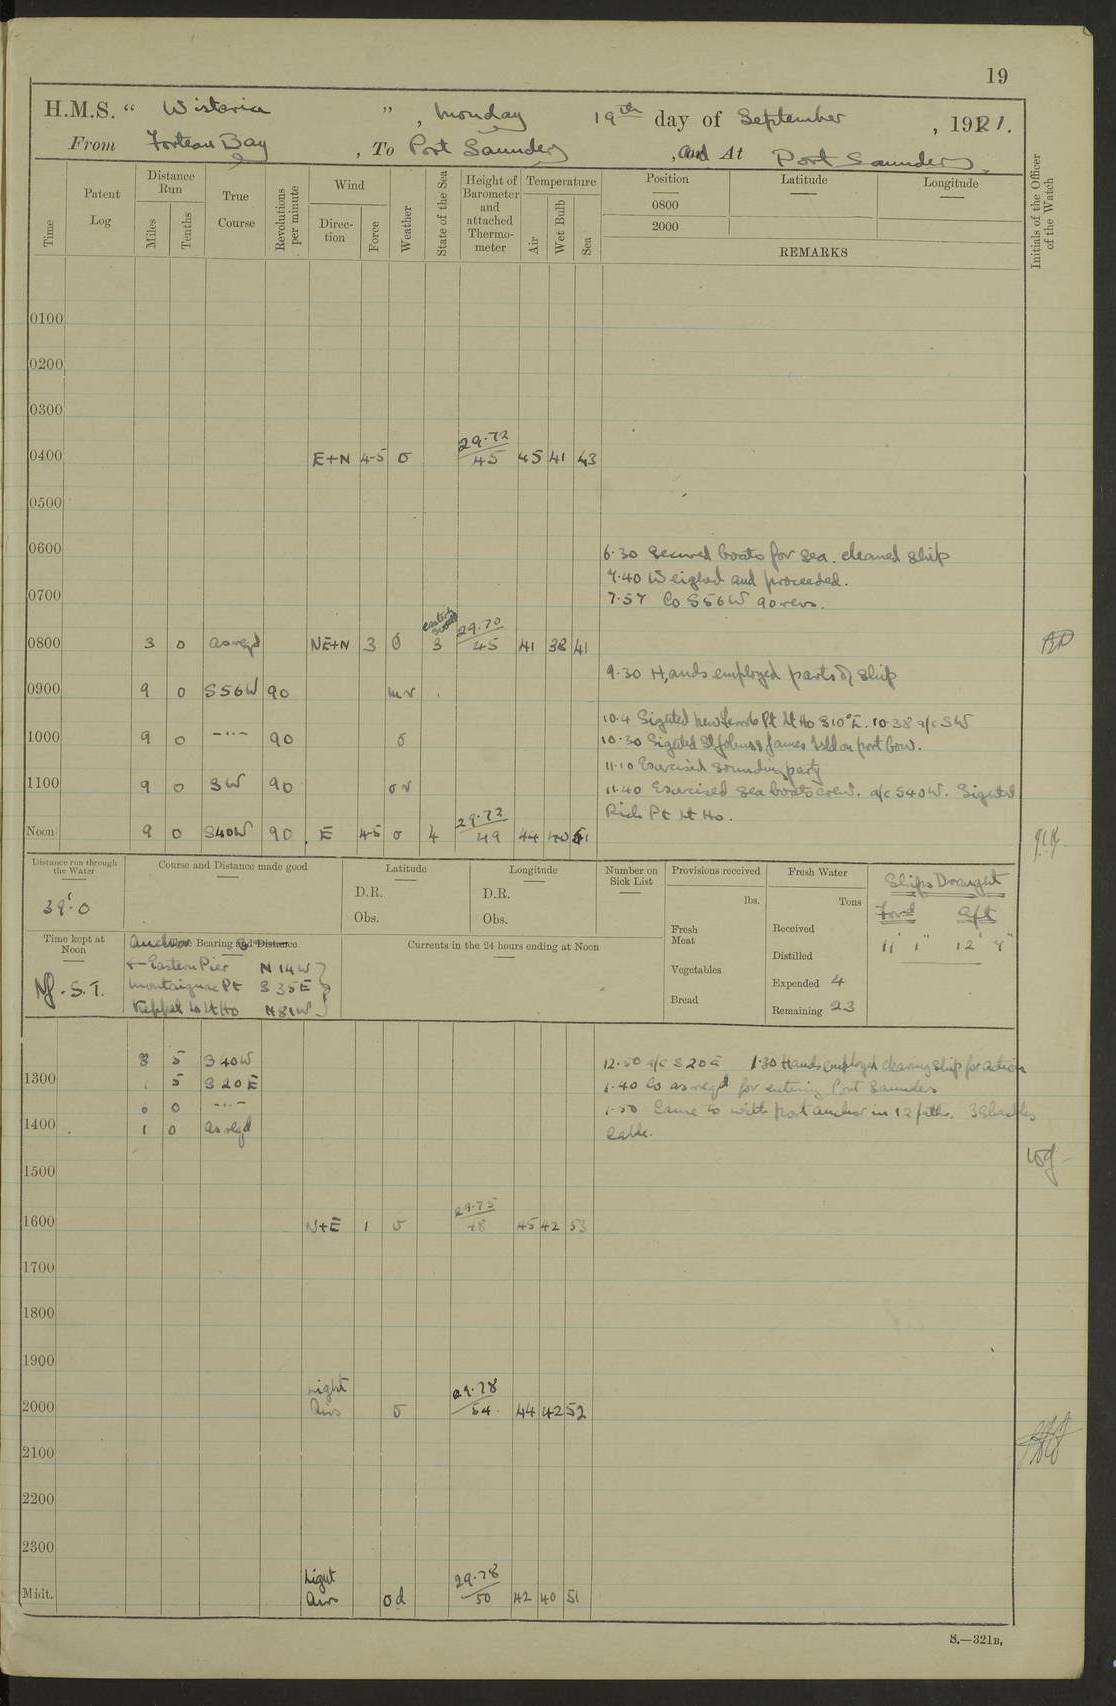 19
H.M.S. " Wisteria ", Monday 19th day of September, 1921.
From Forteau Bay, To Port Saunders, and At Port Saunders
Time
Patent Log
Distance Run
Miles
Tenths
True Course
Revolutions per minute
Wind
Direction
Force
Weather
State of the Sea
Height of Barometer and attached Thermometer
Temperature
Air
Wet Bulb
Sea
Position
0800
2000
Latitude
Longitude
REMARKS
Initials of the Officer of the Watch
0100
0200
0300
29.72
0400 E+N 4-5 o 45 45 41 43
0500
0600
6.30 Secured boats for sea. cleaned ship
7.40 Weighed and proceeded.
0700
7.57 Co S56W 90 revs.
29.70
0800 3 0 as reqd NE+N 3 o 3 45 41 38 41
9.30 Hands employed parts of ship
0900 9 0 S56W 90 mv
10.4 Sighted New Ferrole Pt Lt Ho S10°E. 10.38 a/c SW
1000 9 0 -"- 90 o
10.30 Sighted St Johns & James Isld on port bow.
11.10 Exercised sounding party
1100 9 0 SW 90 ov
11.40 Exercised sea boats crew. a/c S40W. Sighted
Rich Pt Lt Ho.
29.72
Noon 9 0 S40W 90 E 4-5 o 4 49 44 40 41
Distance run through the Water
39'.0
Course and Distance made good
Latitude
D.R.
Obs.
Longitude
D.R.
Obs.
Number on Sick List
Provisions received
lbs.
Fresh Meat
Vegetables
Bread
Fresh Water
Tons
Received
Distilled
Expended 4
Remaining 23
Ships Draught
Ford Aft
11' 1" 12' 9"
Time kept at Noon
Nf. S.T.
Anchor True Bearing and Distance
Eastern Pier N14W
Montaigne Pt S35E
Keppel Is Lt Ho N81W
Currents in the 24 hours ending at Noon
8 5 S40W
12.50 a/c S20E 1.30 Hands employed clearing ship for action
1300 5 S20E
1.40 Co as reqd for entering Port Saunders
0 0 -"-
1.50 Came to with port anchor in 12 faths. 3 Shackles
1400 1 0 as reqd
cable.
1500
29.75
1600 N+E 1 o 48 45 42 53
1700
1800
1900
29.78
2000 Light Airs o 54 44 42 52
2100
2200
2300
29.78
Midt. Light Airs od 50 42 40 51
S.—321B.